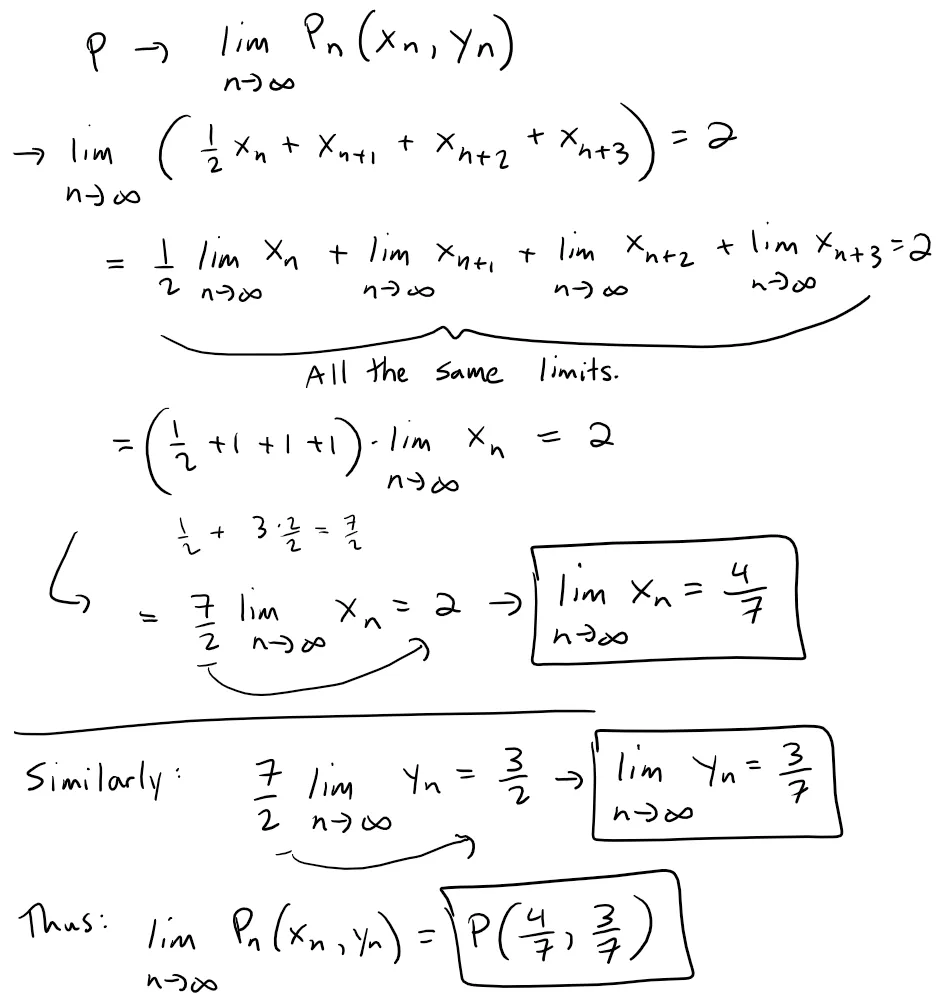 P → lim_{n→∞} P_n (x_n, y_n)
→ lim_{n→∞} ( 1/2 x_n + x_{n+1} + x_{n+2} + x_{n+3} ) = 2
= 1/2 lim_{n→∞} x_n + lim_{n→∞} x_{n+1} + lim_{n→∞} x_{n+2} + lim_{n→∞} x_{n+3} = 2
All the same limits.
= ( 1/2 + 1 + 1 + 1 ) · lim_{n→∞} x_n = 2
1/2 + 3 · 2/2 = 7/2
= 7/2 lim_{n→∞} x_n = 2 → lim_{n→∞} x_n = 4/7
Similarly: 7/2 lim_{n→∞} y_n = 3/2 → lim_{n→∞} y_n = 3/7
Thus: lim_{n→∞} P_n (x_n, y_n) = P( 4/7, 3/7 )